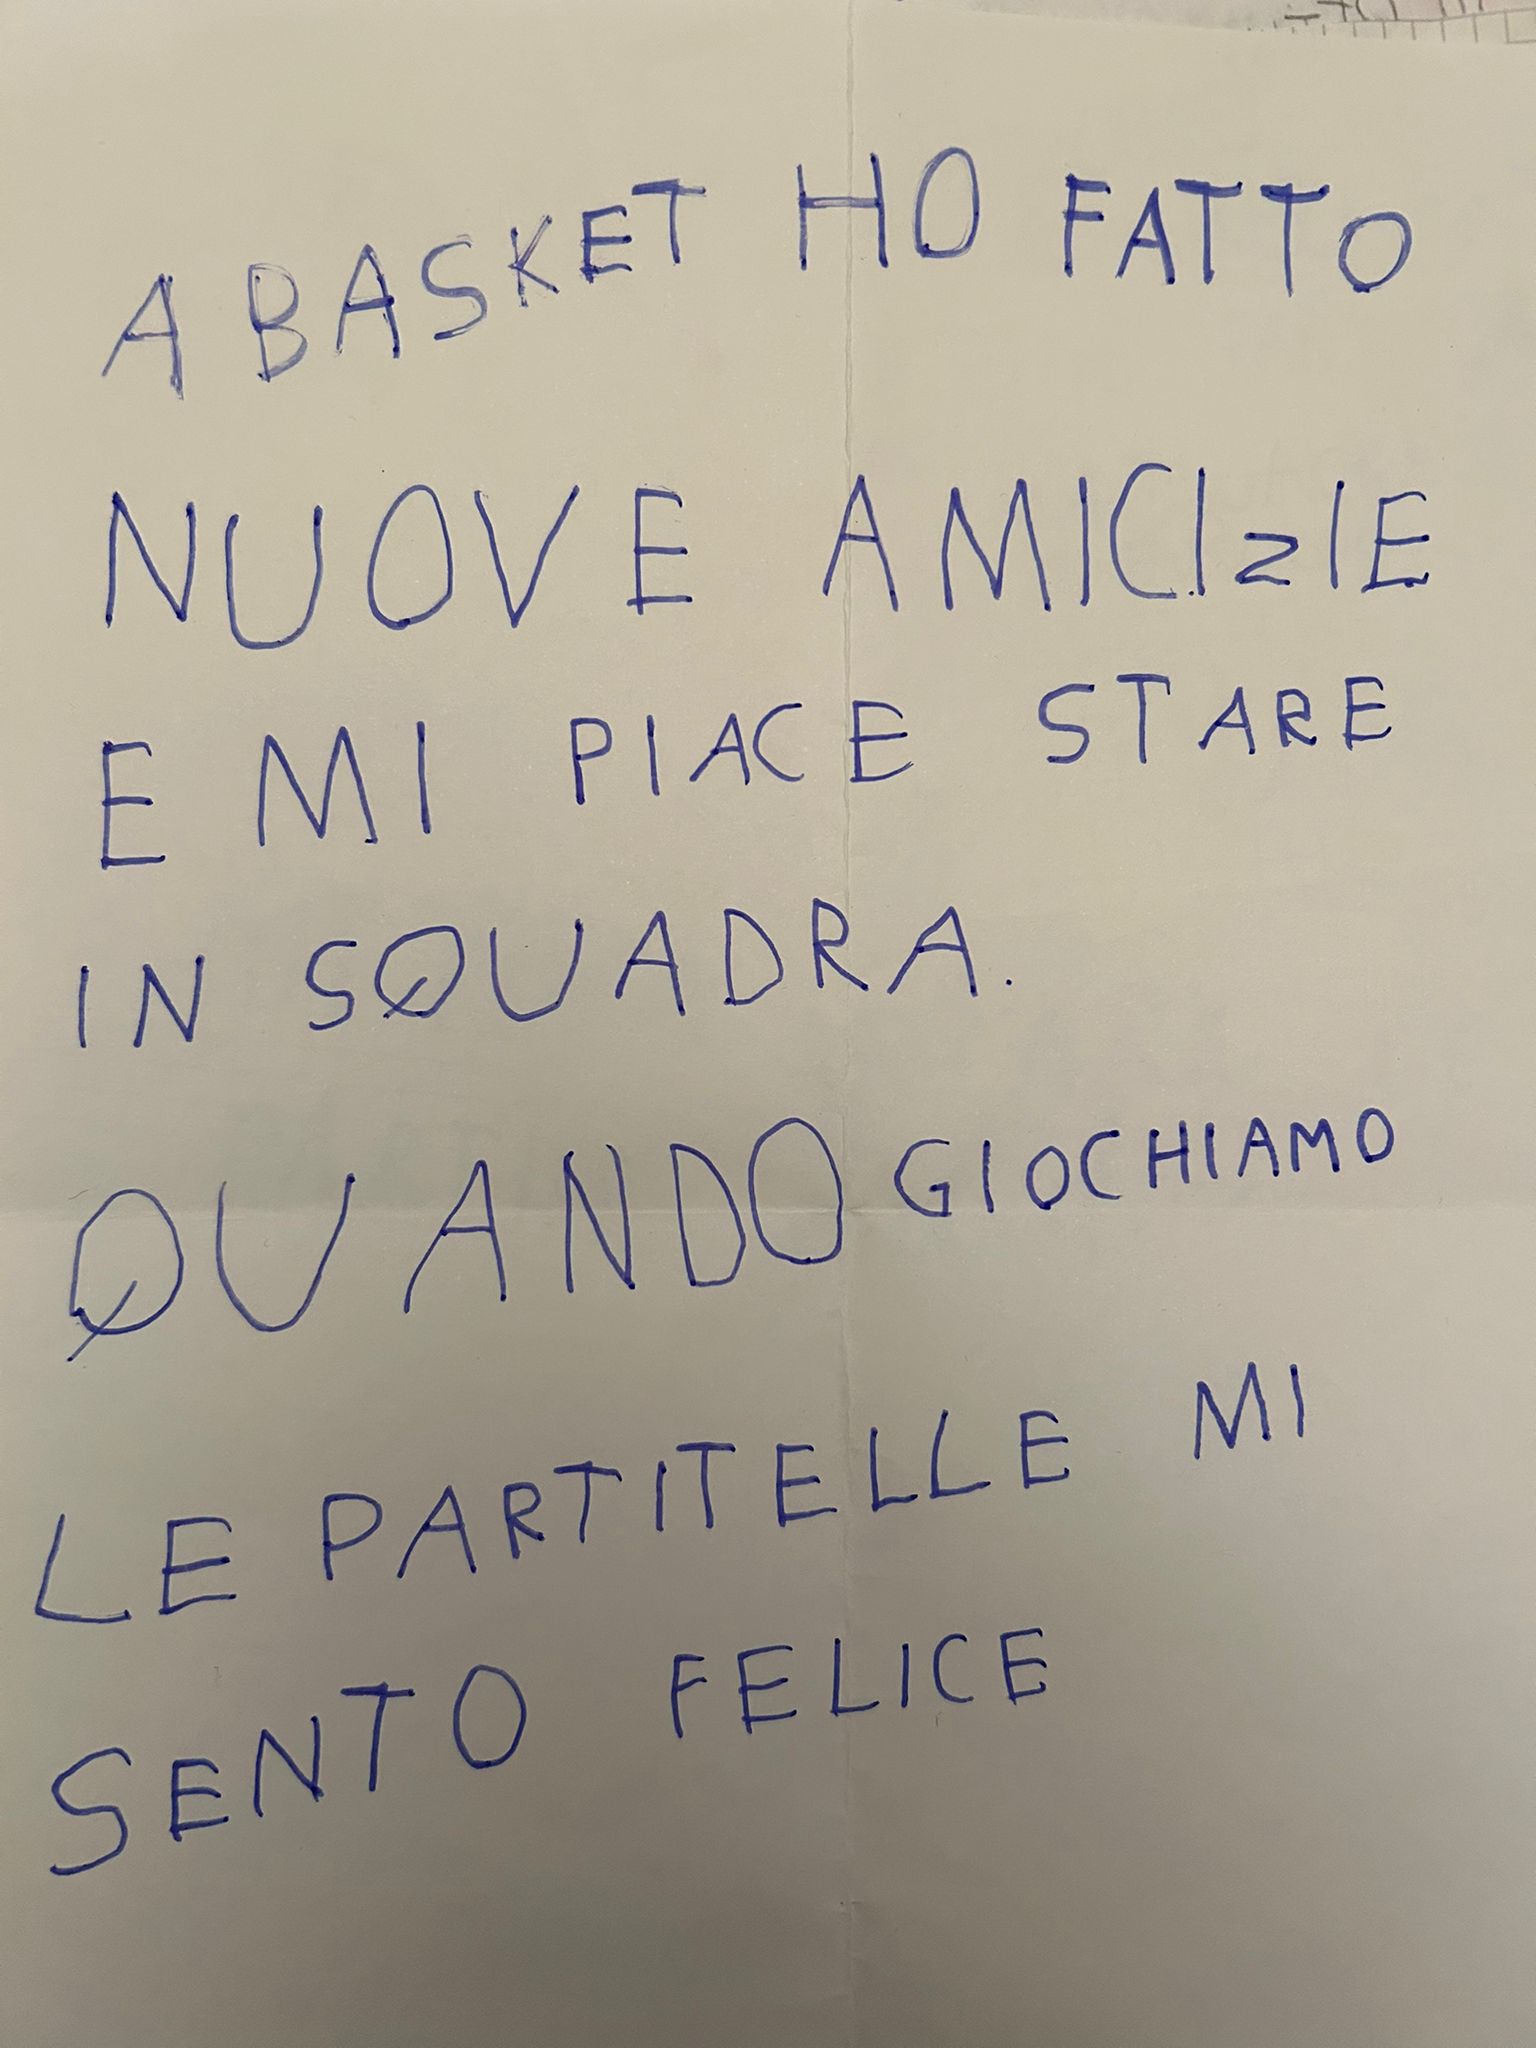 A BASKET HO FATTO
NUOVE AMICIZIE
E MI PIACE STARE
IN SQUADRA.
QUANDO GIOCHIAMO
LE PARTITELLE MI
SENTO FELICE